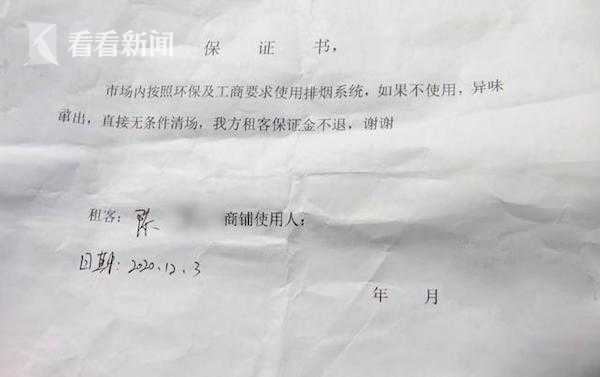 看看新闻
保 证 书,
市场内按照环保及工商要求使用排烟系统,如果不使用,异味
窜出,直接无条件清场,我方租客保证金不退,谢谢
租客:陈 商铺使用人:
日期:2020.12.3
年 月